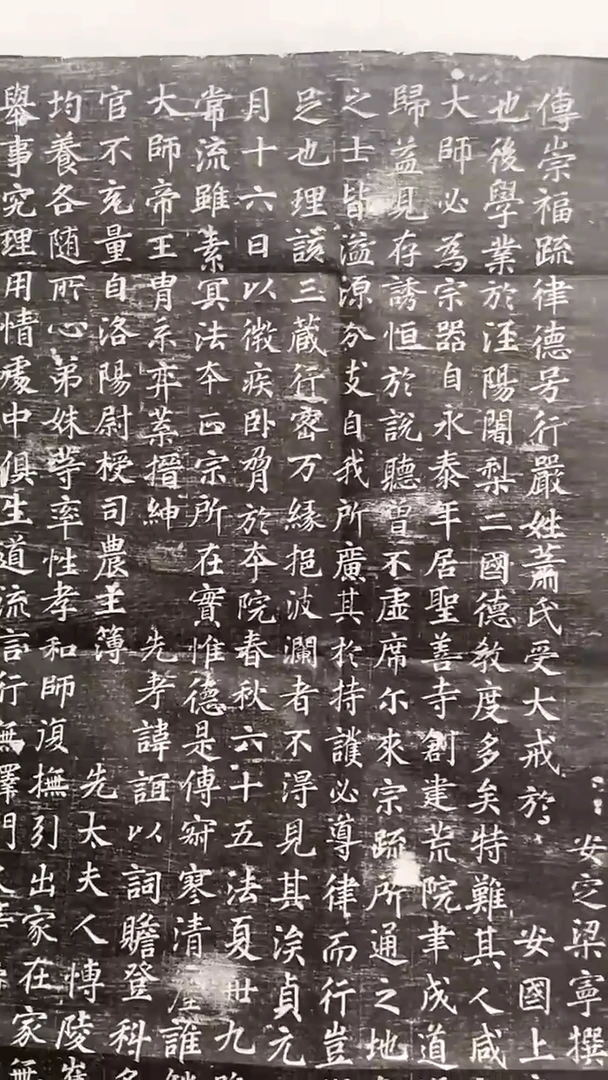 安定梁寧撰
傳崇福疏律德号行嚴姓蕭氏受大戒於安國上
也後學業於涇陽闍梨二國德教度多矣特難其人咸
大師必為宗器自永泰年居聖善寺創建荒院聿成道
歸益見存誘恒於說聽曾不虛席尔來宗疏所通之地
之士皆溢源分支自我所廣其於持護必尊律而行豈
足也理該三藏行密万緣挹波瀾者不得見其涘貞元
月十六日以微疾卧脅於本院春秋六十五法夏卅九
常流雖素冥法本正宗所在實惟德是傳寂寒清誰
大師帝王胄系弈葉搢紳先考諱誼以詞贍登科
官不充量自洛陽尉授司農主簿先太夫人博陵
均養各随所心弟妹等率性孝和師復撫引出家在家無
舉事究理用情處中俱生道流言行無擇門